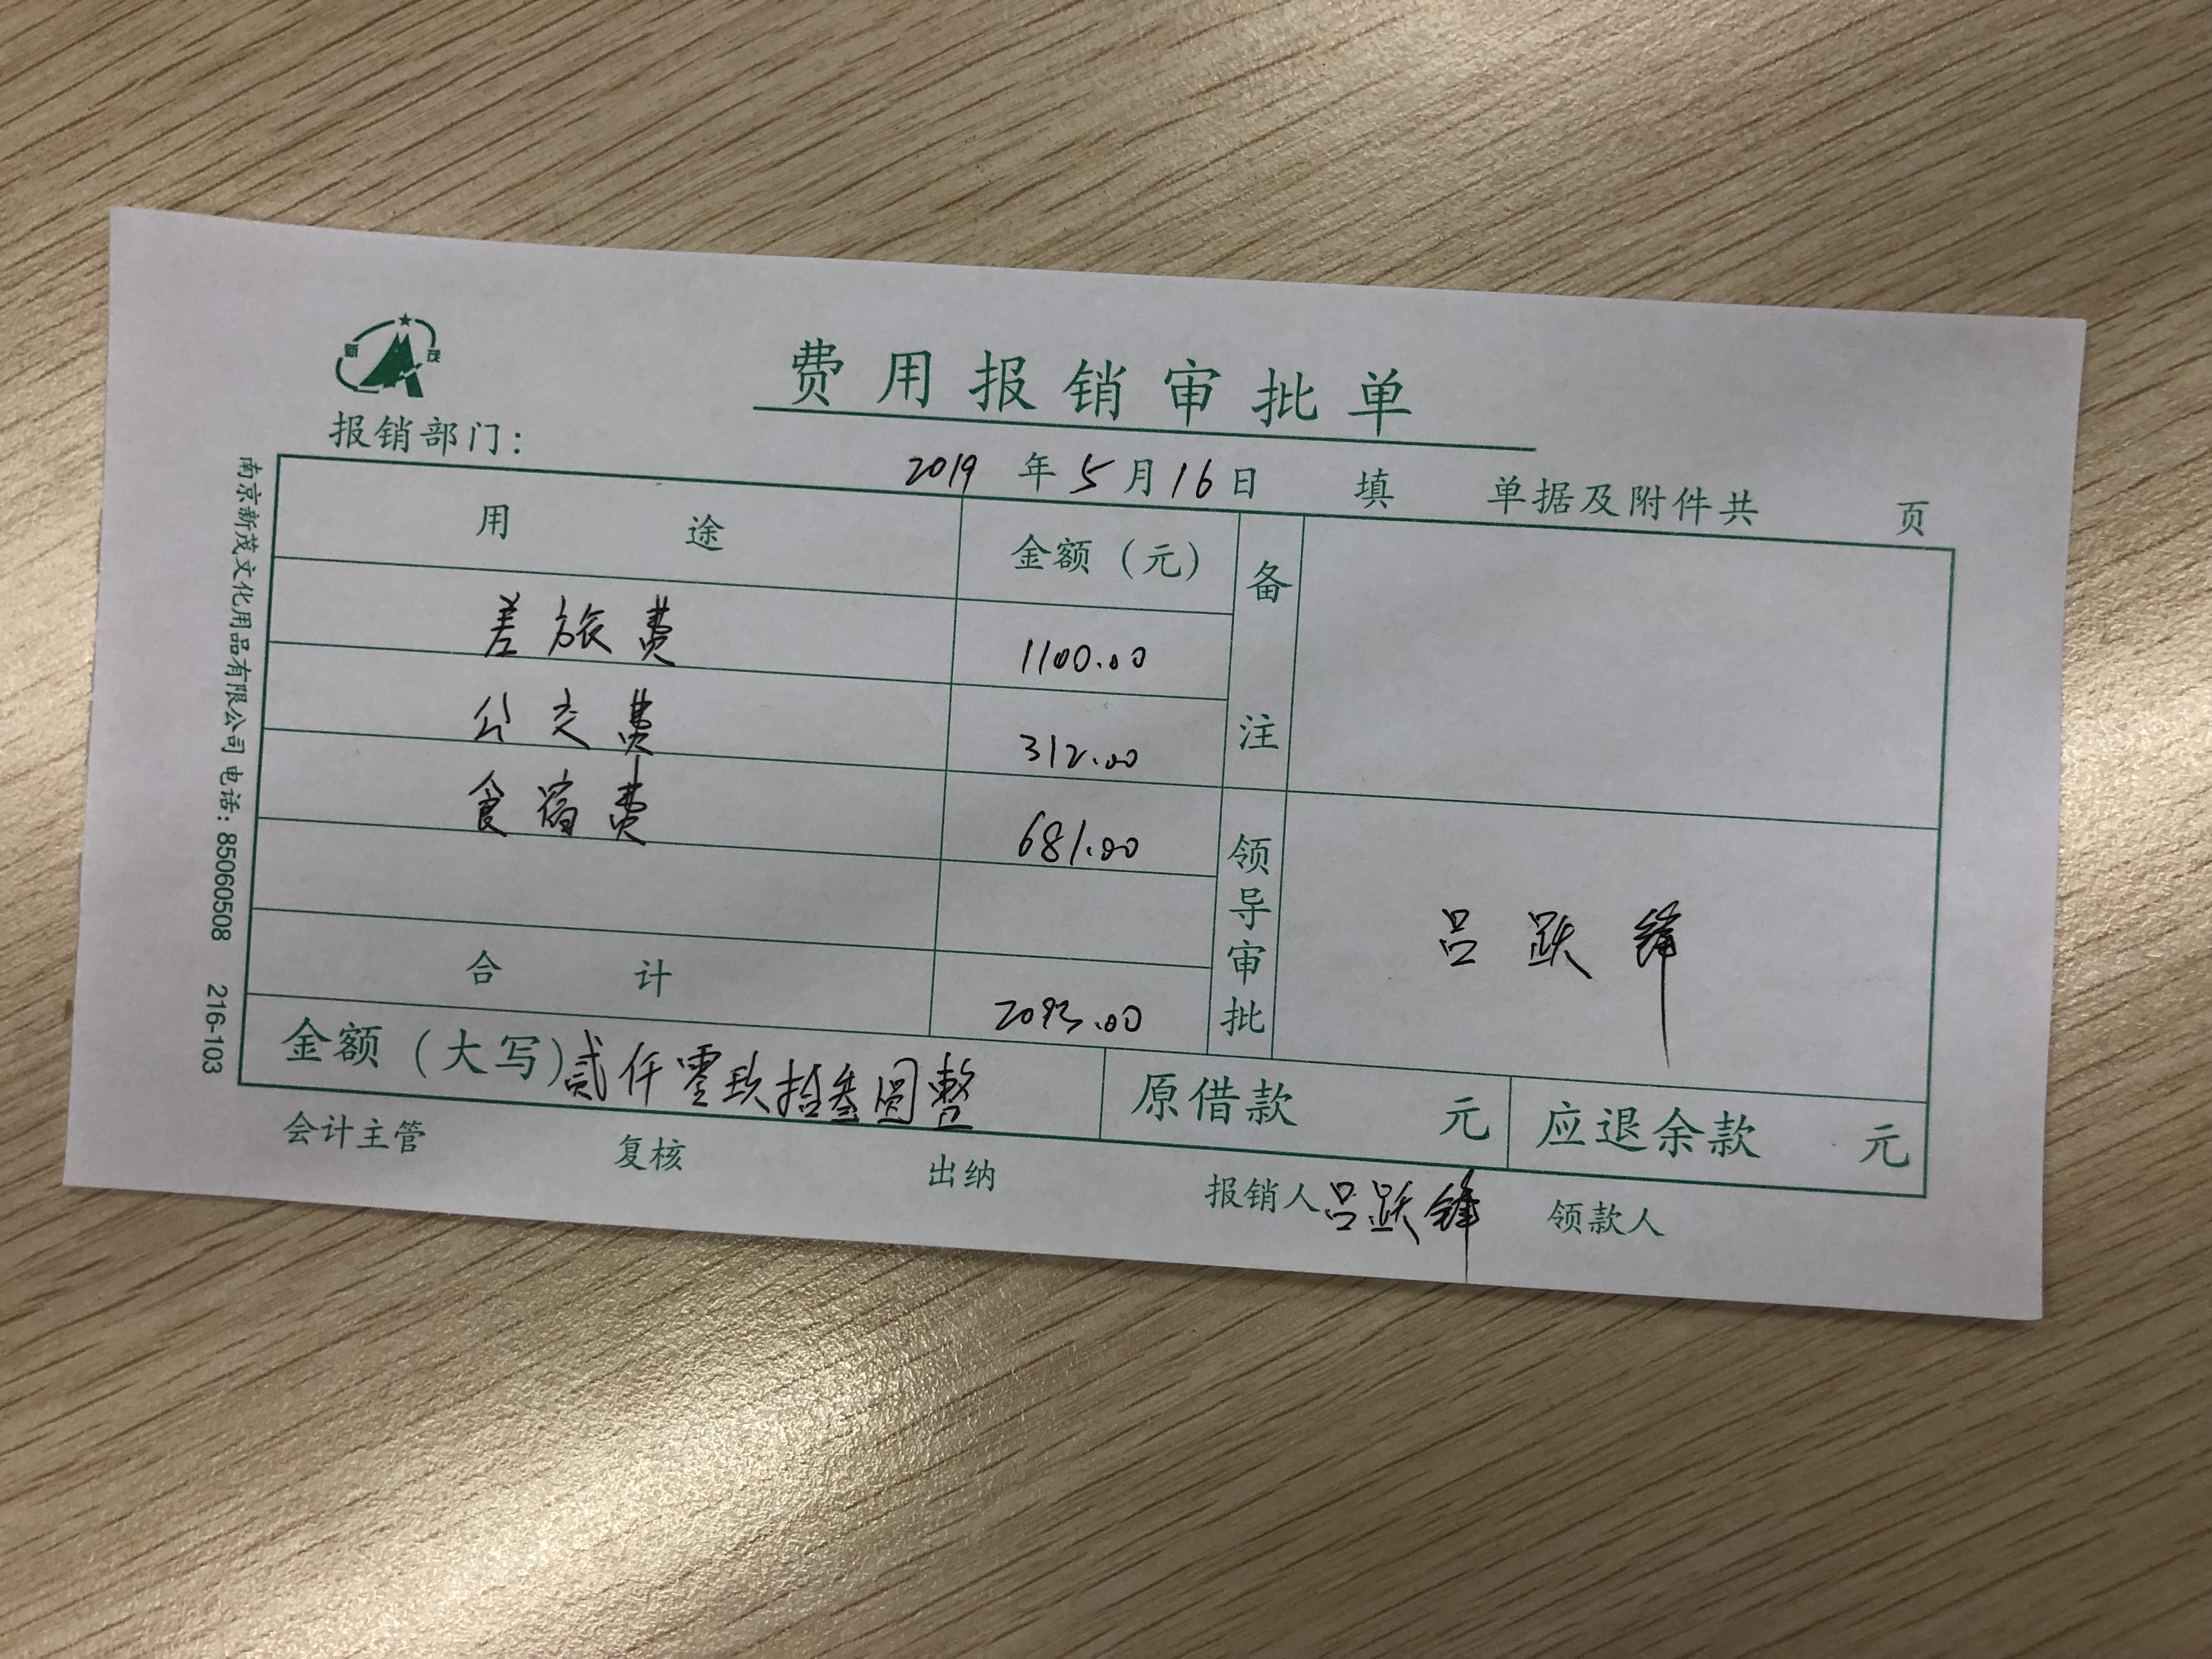 新茂
费用报销审批单
报销部门： 2019年5月16日 填 单据及附件共 页
用途 金额（元） 备注
差旅费 1100.00
公交费 312.00
食宿费 681.00
领导审批
合计 2093.00
金额（大写）贰仟零玖拾叁圆整 原借款 元 应退余款 元
会计主管 复核 出纳 报销人 领款人
南京新茂文化用品有限公司 电话：85060508 216-103